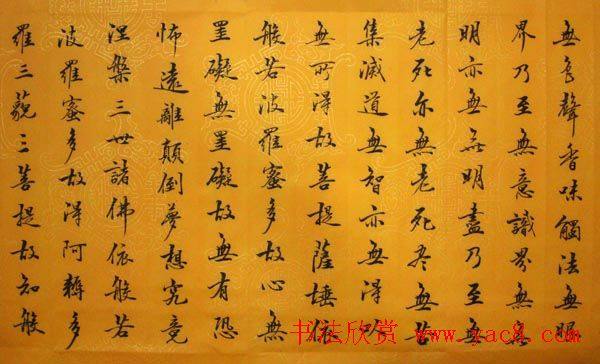 無色聲香味觸法無眼
界乃至無意識界無無
明亦無无明盡乃至無
老死亦無老死尽無苦
集滅道無智亦無得以
無所得故菩提薩埵依
般若波羅蜜多故心無
罣礙無罣礙故無有恐
怖遠離顛倒夢想究竟
涅槃三世諸佛依般若
波羅蜜多故得阿耨多
羅三藐三菩提故知般
书法欣赏 www.yac8.com